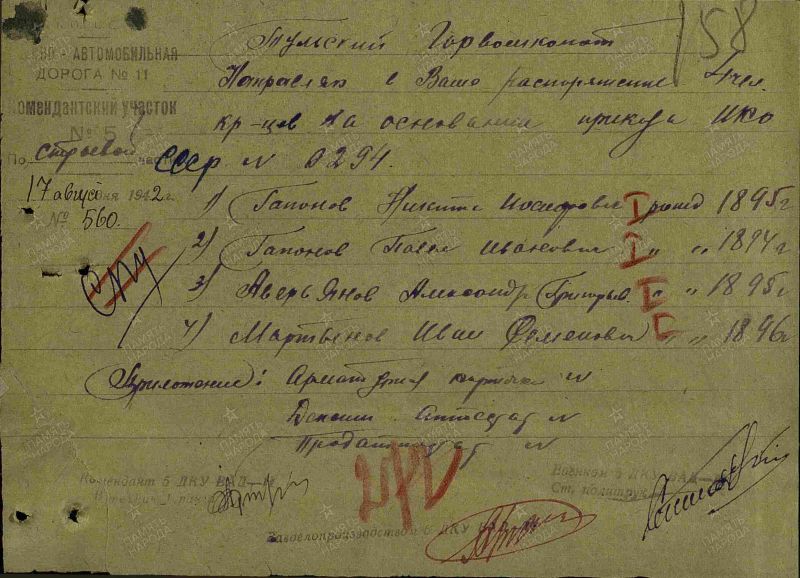 158
ВОЕННО-АВТОМОБИЛЬНАЯ
ДОРОГА № 11
Комендантский участок
№ 5
По строевой части
17 августа дня 1942 г.
№ 560.
Тульский Горвоенкомат
Направляю в Ваше распоряжение 4 чел.
кр-цов На основании приказа НКО
СССР № 0294.
1) Гапонов Никита Иосифович рожд 1895 г
2) Гапонов Павел Иванович " " 1894 г
3) Аверьянов Александр Григорьев. " " 1895 г
4) Мартынов Иван Семенович " " 1896 г
Приложение: Арматурная карточка №
Денеж. Аттестат №
Продаттестат №
Комендант 5 ДКУ ВАД—11
Военком 5 ДКУ ВАД—11
Ст. политрук
Завделопроизводством 5 ДКУ ВАД